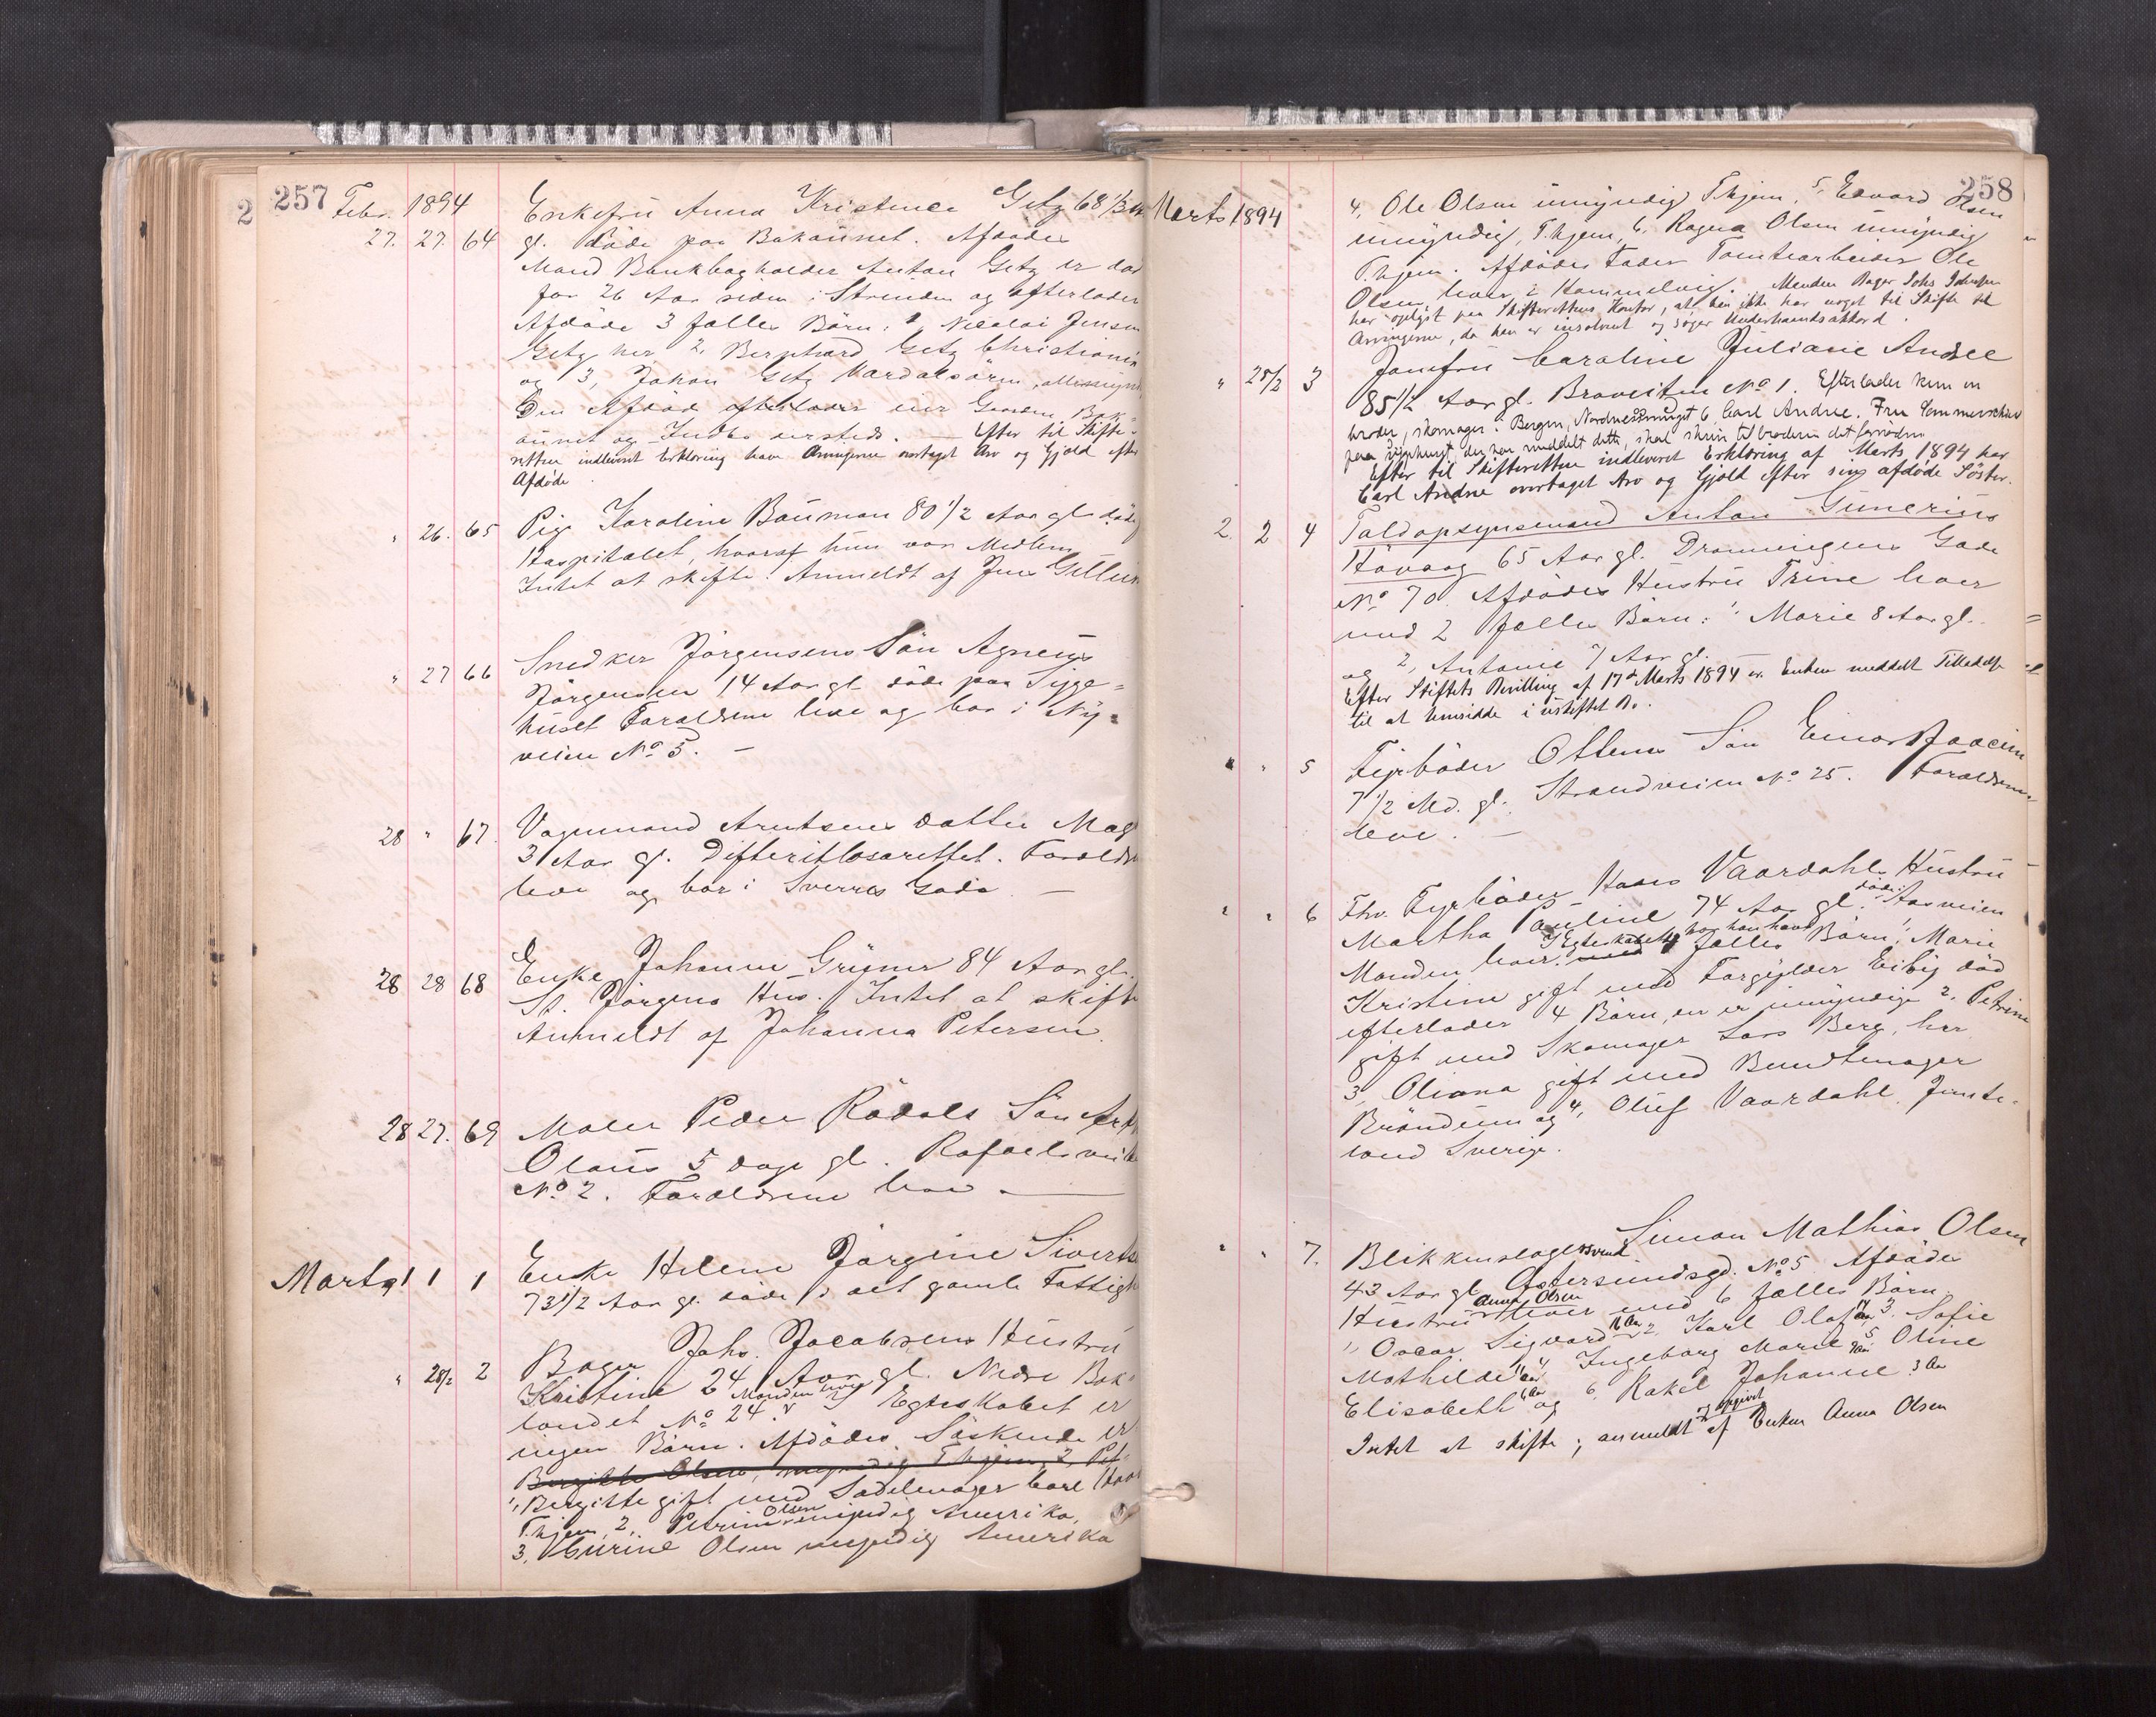 257 Febr. 1894
27. 27. 64 Enkefru Anna Kristine Getz 68 1/3 Aar
gl. døde paa Bakaunet. Afdødes
Mand Bankbogholder Anton Getz er død
for 26 Aar siden i Strinden og efterlader
Afdøde 3 fælles Børn: 1, Nicolai Jensen
Getz her 2, Bernhard Getz Christiania
og 3, Johan Getz Værdalsøren, alle myndige
Den Afdøde efterlader sig Gaarden Bak-
aunet og Indbo sersteds. — Efter til Skifte-
retten indleveret Erklæring have Arvingerne overtaget Arv og Gjæld efter
Afdøde.
" 26. 65 Pige Karoline Bauman 80 1/2 Aar gl. døde
Hospitalet, hvoraf hun var Medlem
Intet at skifte. Anmeldt af Jens
" 27 66 Snedker Jørgensens Søn Agnæus
Jørgensen 14 Aar gl. døde paa Syge-
huset Forældrene leve og bor i Ny-
veien No 5. —
28 " 67. Vognmand Arntsens datter Mag
3 Aar gl. Difteritlasarettet. Forældrene
leve og bor i Sverres Gade. —
28 28 68 Enke Johanne Gruner 84 Aar gl.
St. Jørgens Hus. Intet at skifte
Anmeldt af Johanna Petersen.
28 27. 69 Maler Peder Rødals Søn
Olaus 5 dage gl. Rafaels veiten
No 2. Forældrene leve. —
Marts 1 1 1 Enke Helene Jørgine Sivertsen
73 1/2 Aar gl. døde i det gamle Fattighus
" 28/2 2 Bager Johs. Jacobsens Hustru
Kristine 24 Aar gl. Nedre Bak-
landet No 24. Manden lever I Egteskabet er
ingen Børn. Afdødes Søskende er
Birgitte Olsen, myndig, Thjem, 2, Pet-
1, Bergitte gift med Sadelmager Carl
T.hjem, 2, Petrine Olsen myndig Amerika,
3, Olsen myndig Amerika
258
Marts 1894 4, Ole Olsen umyndig Thjem. 5, Edvard Olsen
umyndig, T.hjem, 6. Ragna Olsen umyndig
T.hjem. Afdødes Fader Tomtearbeider Ole
Olsen lever i Hommelvig. Manden Bager Johs Jakobsen
har oplyst paa Skifterettens Kontor, at han ikke har noget til Skifte til
Arvingerne, da han er insolvent og søger Underhaandsakkord.
" 28/2 3 Jomfru Caroline Juliane Andree
85 1/2 Aar gl. Bravaiten No 1. Efterlader kun en
broder, skomager i Bergen, Nordnessmuget 6, Carl Andree. Fru Sommerschield
paa, der har meddelt dette, skal skrive til broderen det fornødne
Efter til Skifteretten indleveret Erklæring af Marts 1894 har
Carl Andree overtaget Arv og Gjæld efter sin afdøde Søster.
2. 2 4 Toldopsynsmand Anton Gunerius
Høvaag 65 Aar gl. Dronningens Gade
No 70. Afdødes Hustru Trine lever
med 2 fælles Børn: 1, Marie 8 Aar gl.
og 2, Antonie 7 Aar gl.
Efter Stiftets Bevilling af 17de Marts 1894 er Enken meddelt Tilladelse
til at hensidde i uskiftet Bo.
" " 5 Fyrbøder Ottems Søn Einar Joacim
7 1/2 Md. gl. Strandveien No 25. Forældrene
leve. —
" " 6 Fhv. Fyrbøder Hans Vaardahls Hustru
Martha Pauline 74 Aar gl. døde: Aasveien
Manden lever. I Egteskabet har han havt 4 fælles Børn, 1, Marie
Kristine gift med Forgylder død
efterlader 4 Børn, en er umyndig 2, Petrine
gift med Skomager Lars Berg, her
3, Oliana gift med Bundtmager
Brøndum og 4, Oluf Vaardahl, Jemte-
land Sverige.
" " 7. Blikkenslagersvend Simon Mathias Olsen
43 Aar gl. Østersundsgd. No 5 Afdødes
Hustru Anna Olsen lever med 6 fælles Børn
1, Oscar Sigvard 16 Aar 2, Karl Olaf 14 Aar, 3, Sofie
Mathilde 11 Aar 4, Ingeborg Marie 9 Aar 5, Oline
Elisabeth 6 Aar og 6. Rakel Johanne 3 Aar
Intet at skifte, anmeldt og opgivet af Enken Anna Olsen